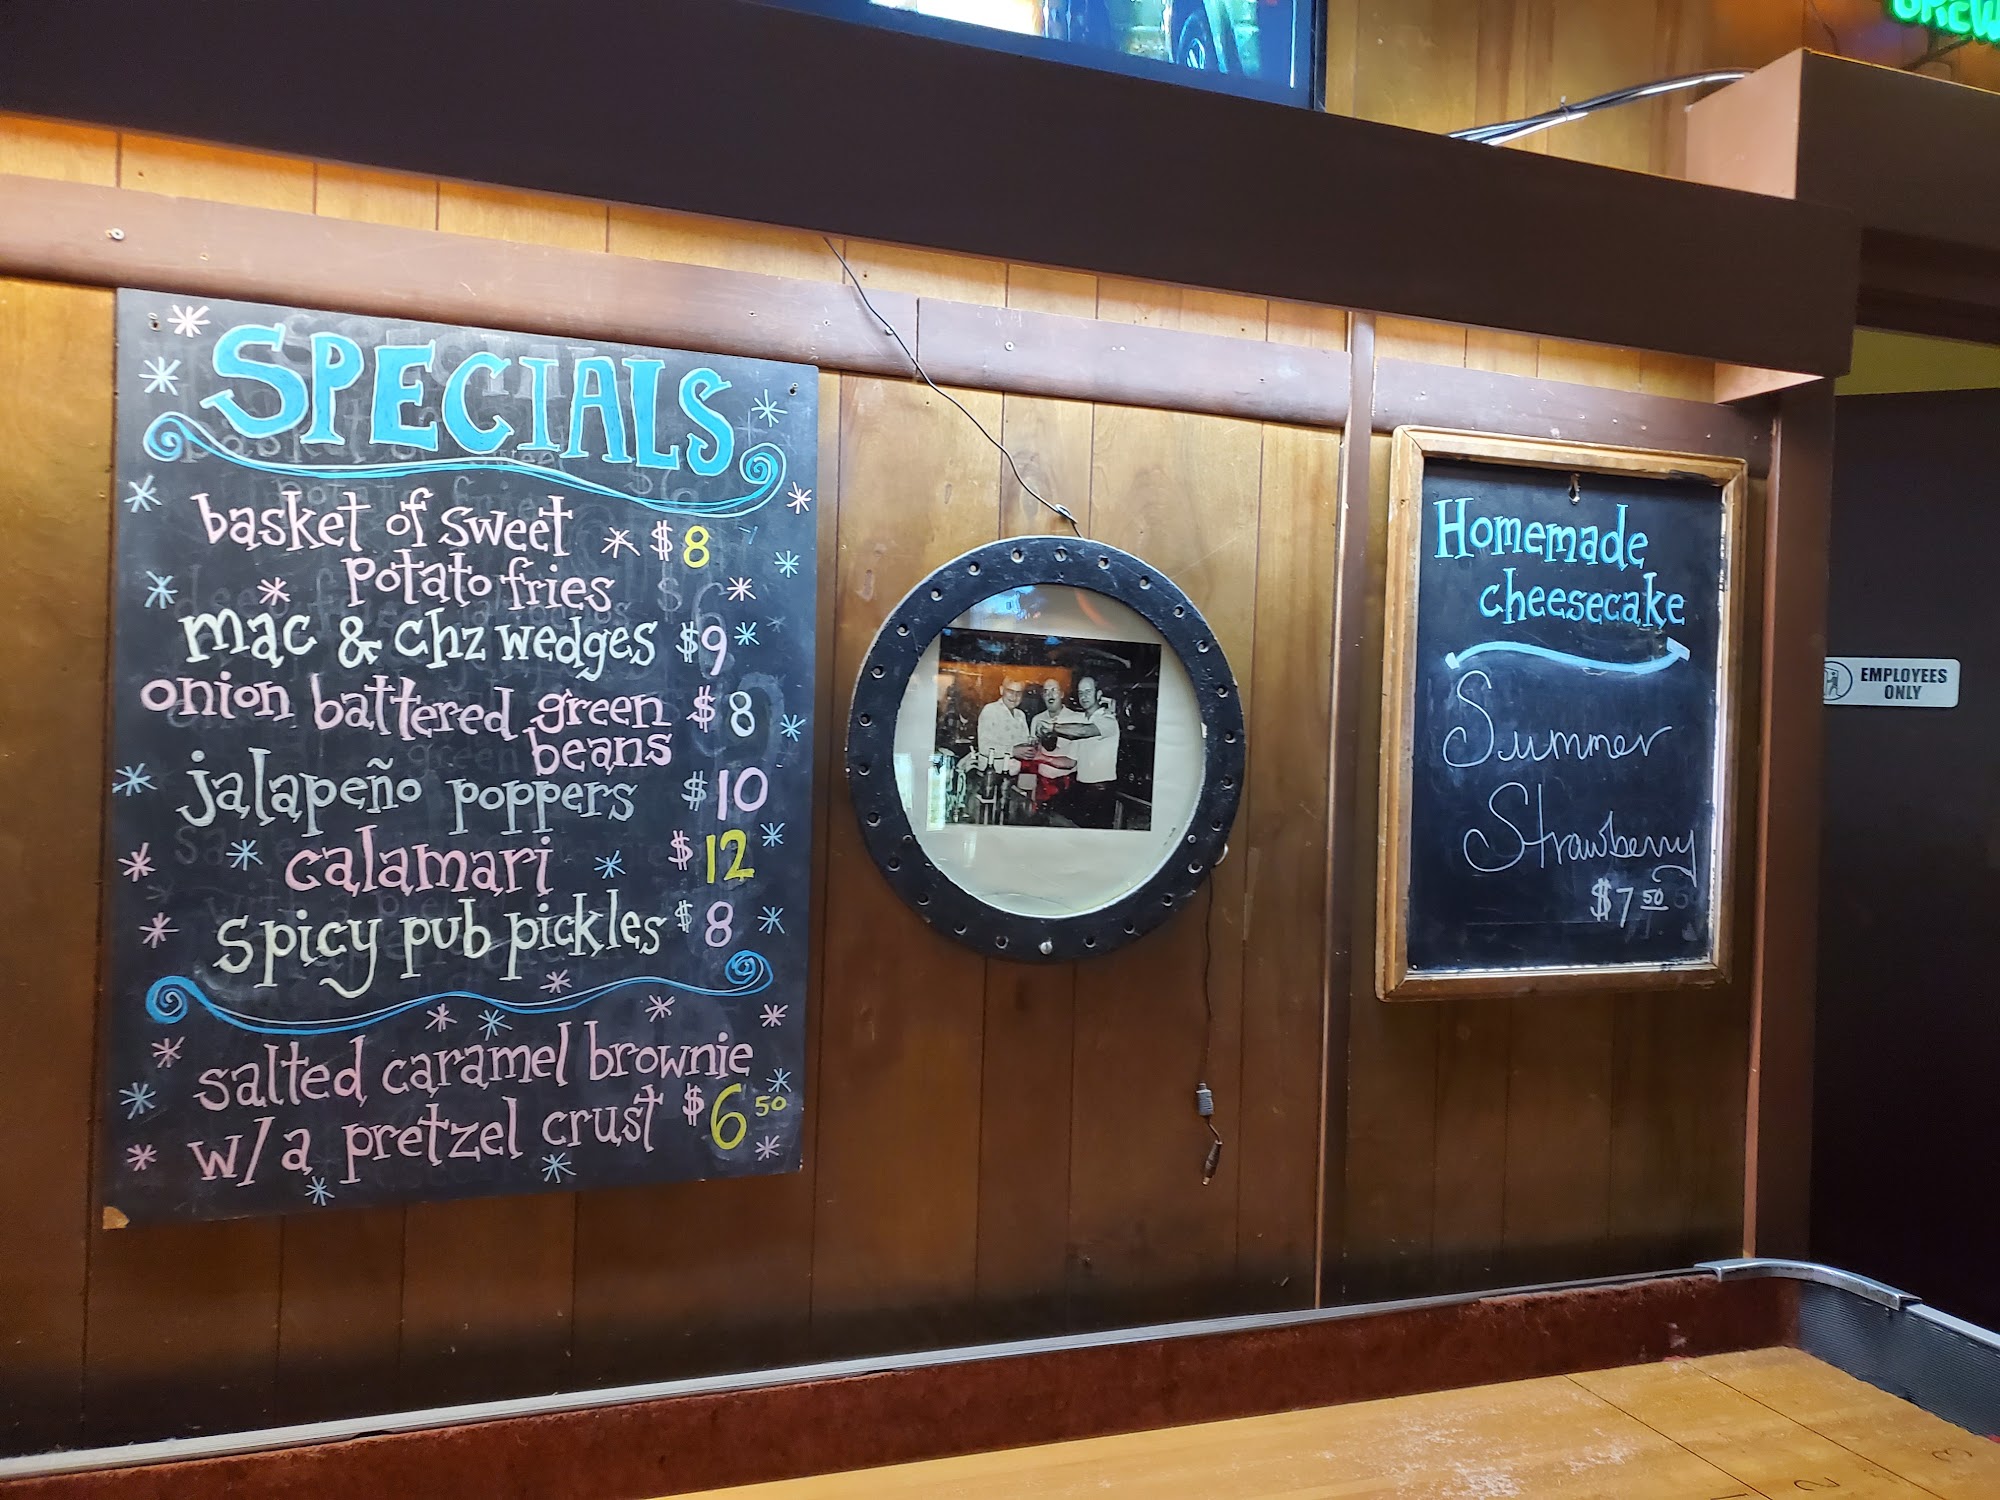 SPECIALS
basket of sweet $8
potato fries
mac & chz wedges $9
onion battered green $8
beans
jalapeño poppers $10
calamari $12
spicy pub pickles $8
salted caramel brownie
w/a pretzel crust $6 50
Homemade
cheesecake
Summer
Strawberry
$7 50
EMPLOYEES
ONLY
1 2 3